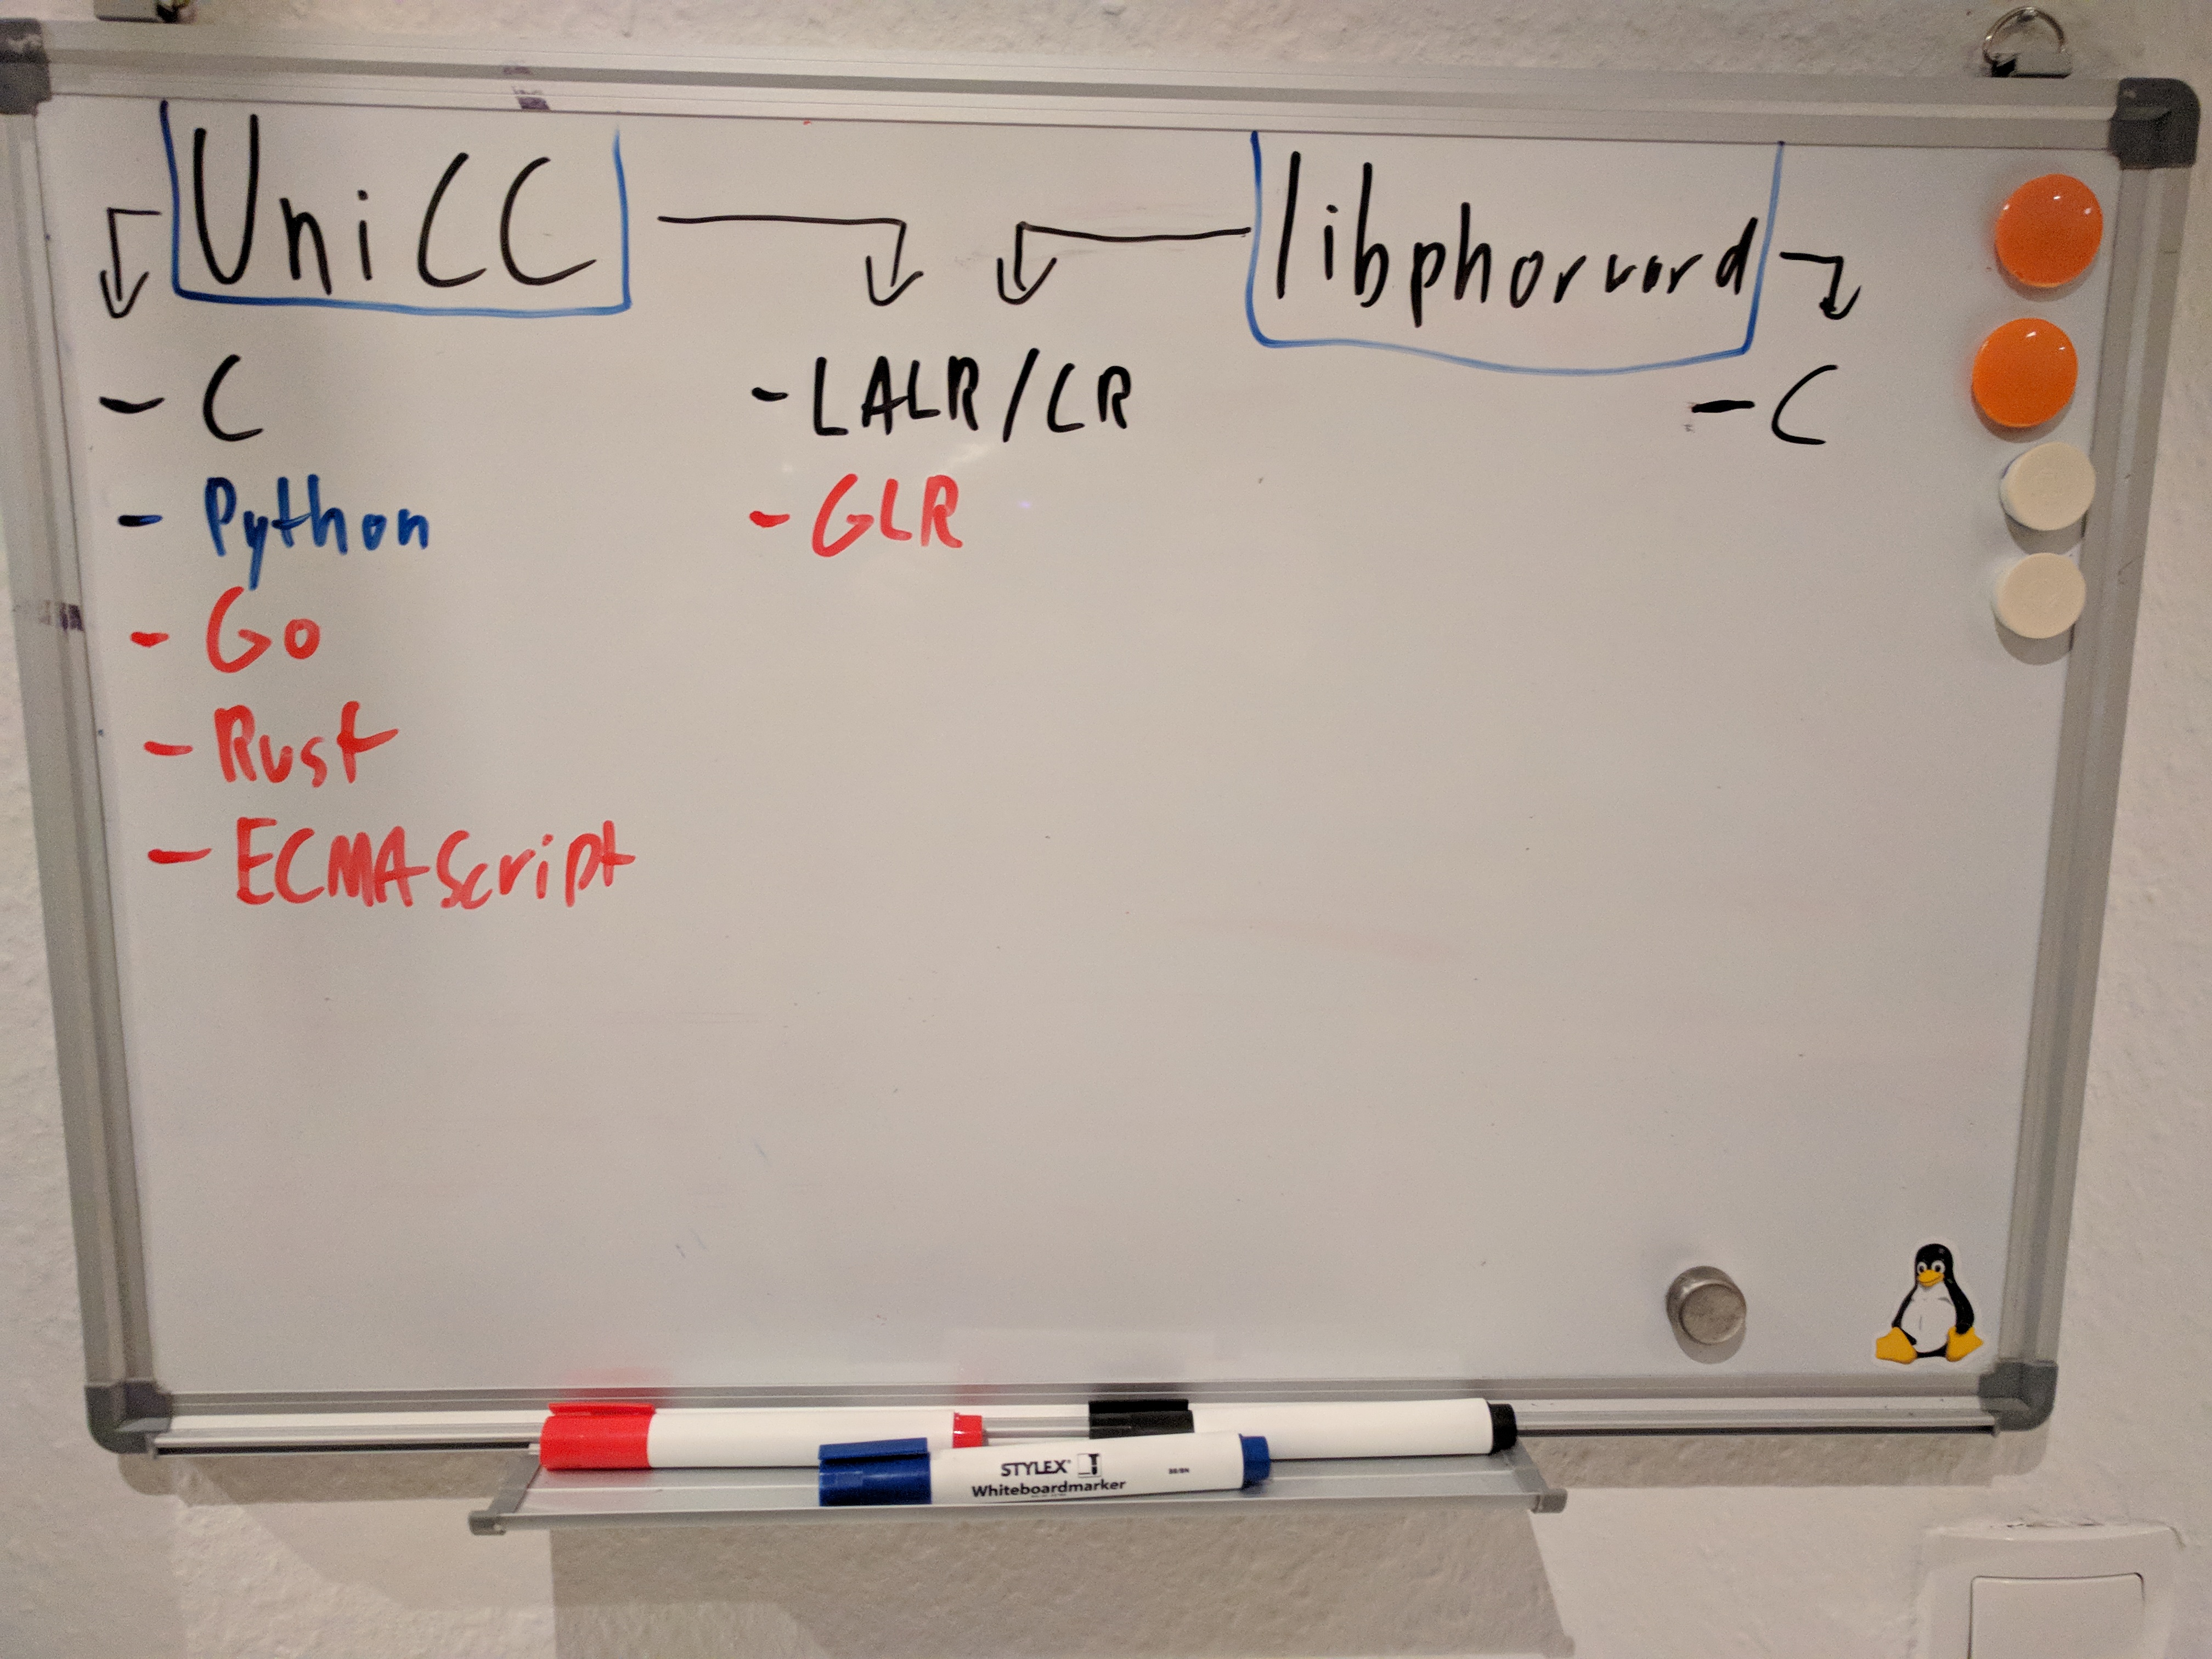 UniCC
libphorword
- C
- Python
- Go
- Rust
- ECMAScript
- LALR/LR
- GLR
- C
STYLEX
Whiteboardmarker